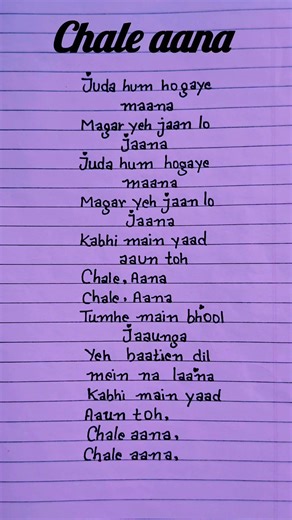 Chale aana
Juda hum hogaye
maana
Magar yeh jaan lo
Jaana
Juda hum hogaye
maana
Magar yeh jaan lo
Jaana
Kabhi main yaad
aaun toh
Chale, Aana
Chale, Aana
Tumhe main bhool
Jaaunga
Yeh baatien dil
mein na laana
Kabhi main yaad
Aaun toh,
Chale aana,
Chale aana,